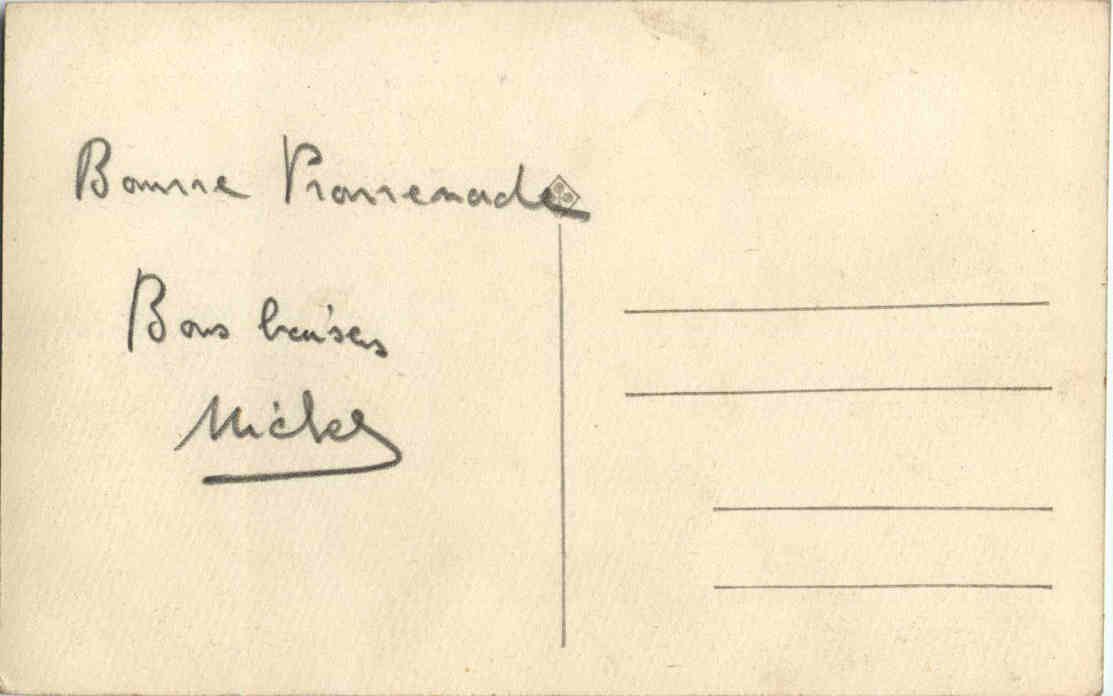 Bonne Promenade
Bons baisers
Michel